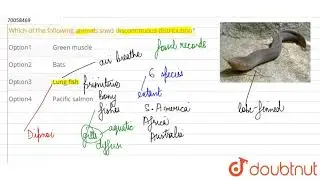 70058469
Which of the following animals show discontinuous distribution?
Option1 Green muscle
Option2 Bats
Option3 Lung fish
Option4 Pacific salmon
air breathe
fossil records
primitive
bony
fishes
6 species
extent
S. America
Africa
Australia
Dipnoi
gills
aquatic
diffusn
lobe-finned
doubtnut